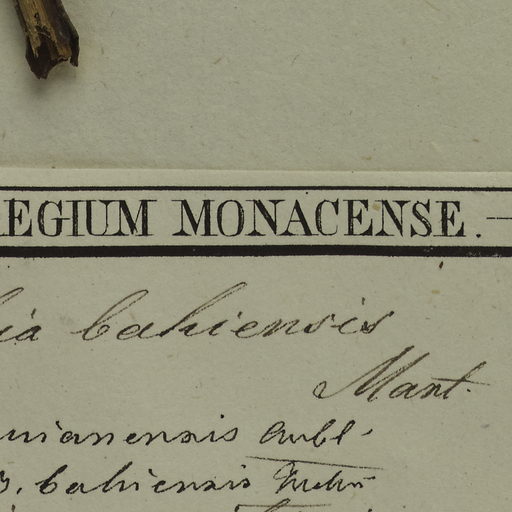 EGIUM MONACENSE.
ia bahiensis
Mart.
uianensis Aubl.
β. bahiensis